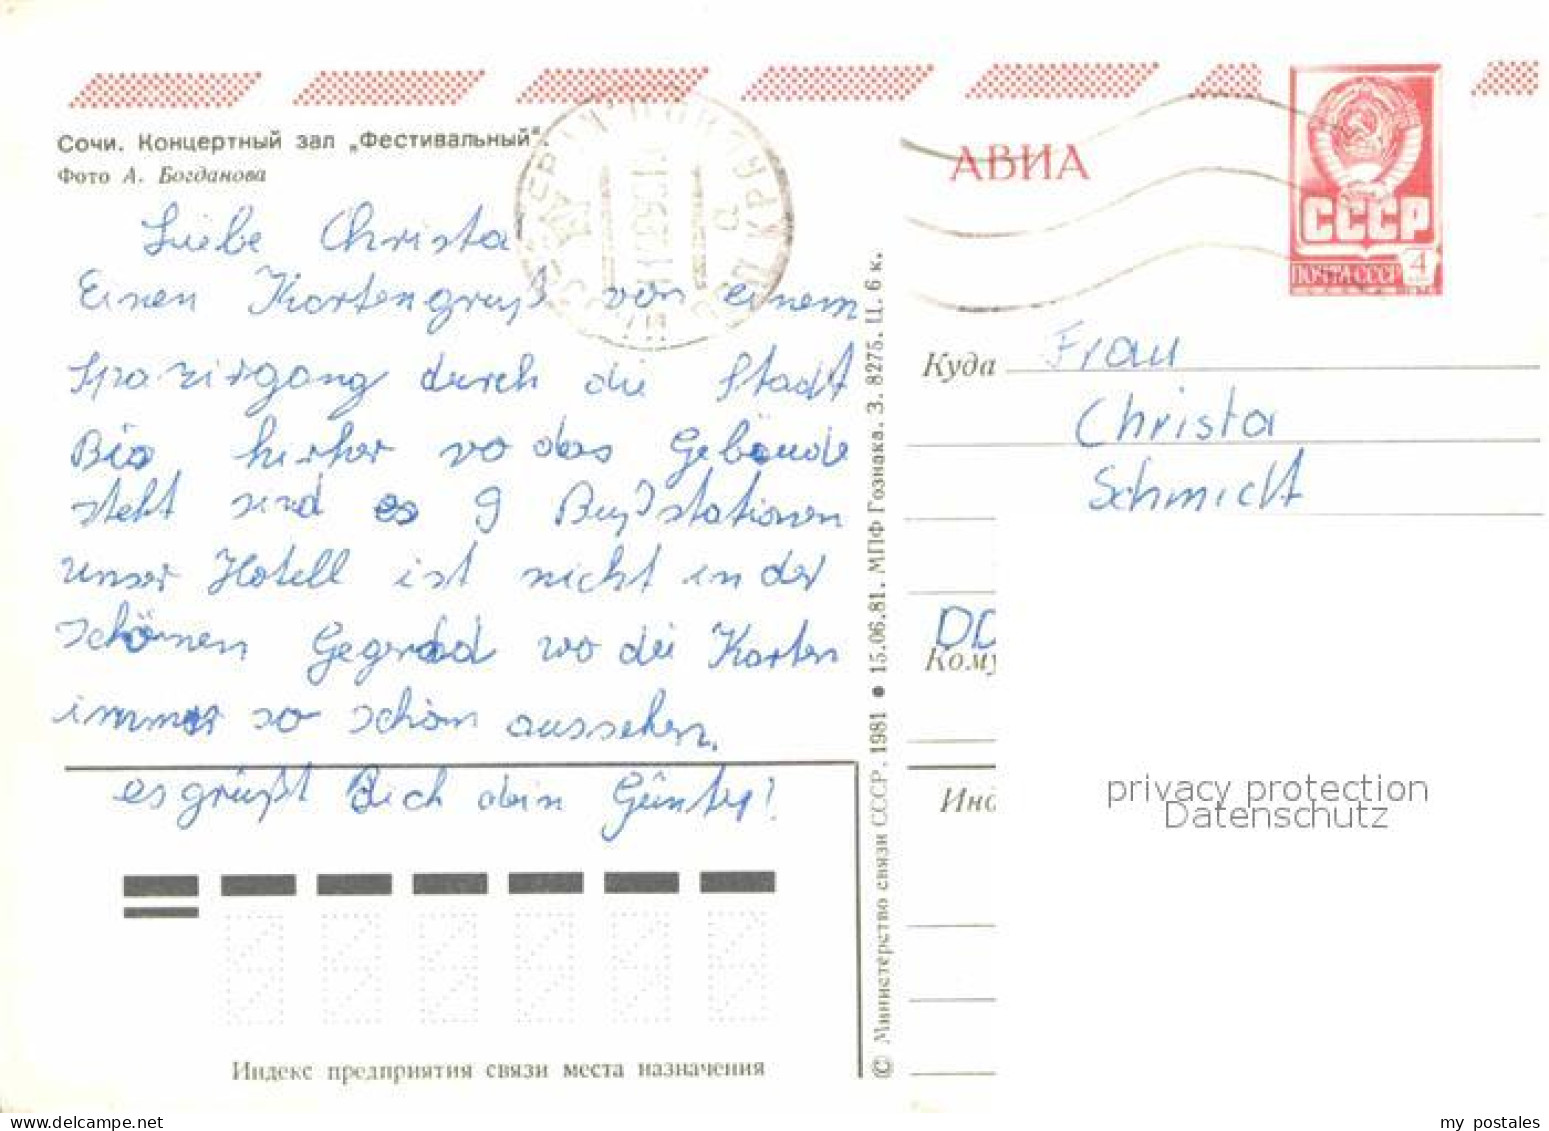 Сочи. Концертный зал „Фестивальный“.
Фото А. Богданова
АВИА
СССР
ПОЧТА СССР 4
Liebe Christa
Einen Kartengruß von einem
Spazirgang durch die Stadt
Bis hierher wo das Gebäude
steht sind es 9 Bußstationen
unser Hotell ist nicht in der
schönen Gegend wo die Karten
immer so schön aussehen.
es grüßt Dich dein Günter!
Куда
Frau
Christa
Schmidt
DD
Кому
Инд
© Министерство связи СССР. 1981 ● 15.06.81. МПФ Гознака. З. 8275. Ц. 6 к.
Индекс предприятия связи места назначения
privacy protection
Datenschutz
my postales